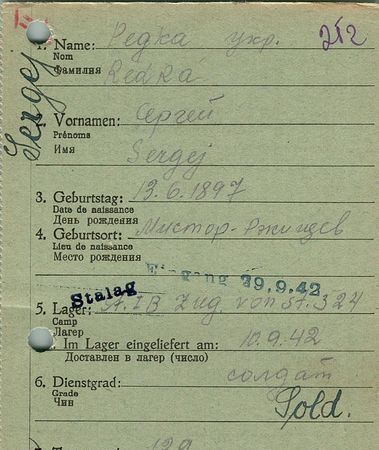 212
1. Name: Редка укр.
Nom
Фамилия Redka
Sergej
2. Vornamen: Сергей
Prénoms
Имя
Sergej
3. Geburtstag: 13.6.1897
Date de naissance
День рождения
4. Geburtsort:
Lieu de naissance
Место рождения
Eingang 29.9.42
Stalag
5. Lager: Zug. von St. 324
Camp
Лагер
Im Lager eingeliefert am: 10.9.42
Доставлен в лагер (число)
6. Dienstgrad: солдат
Grade
Чин Sold.
129